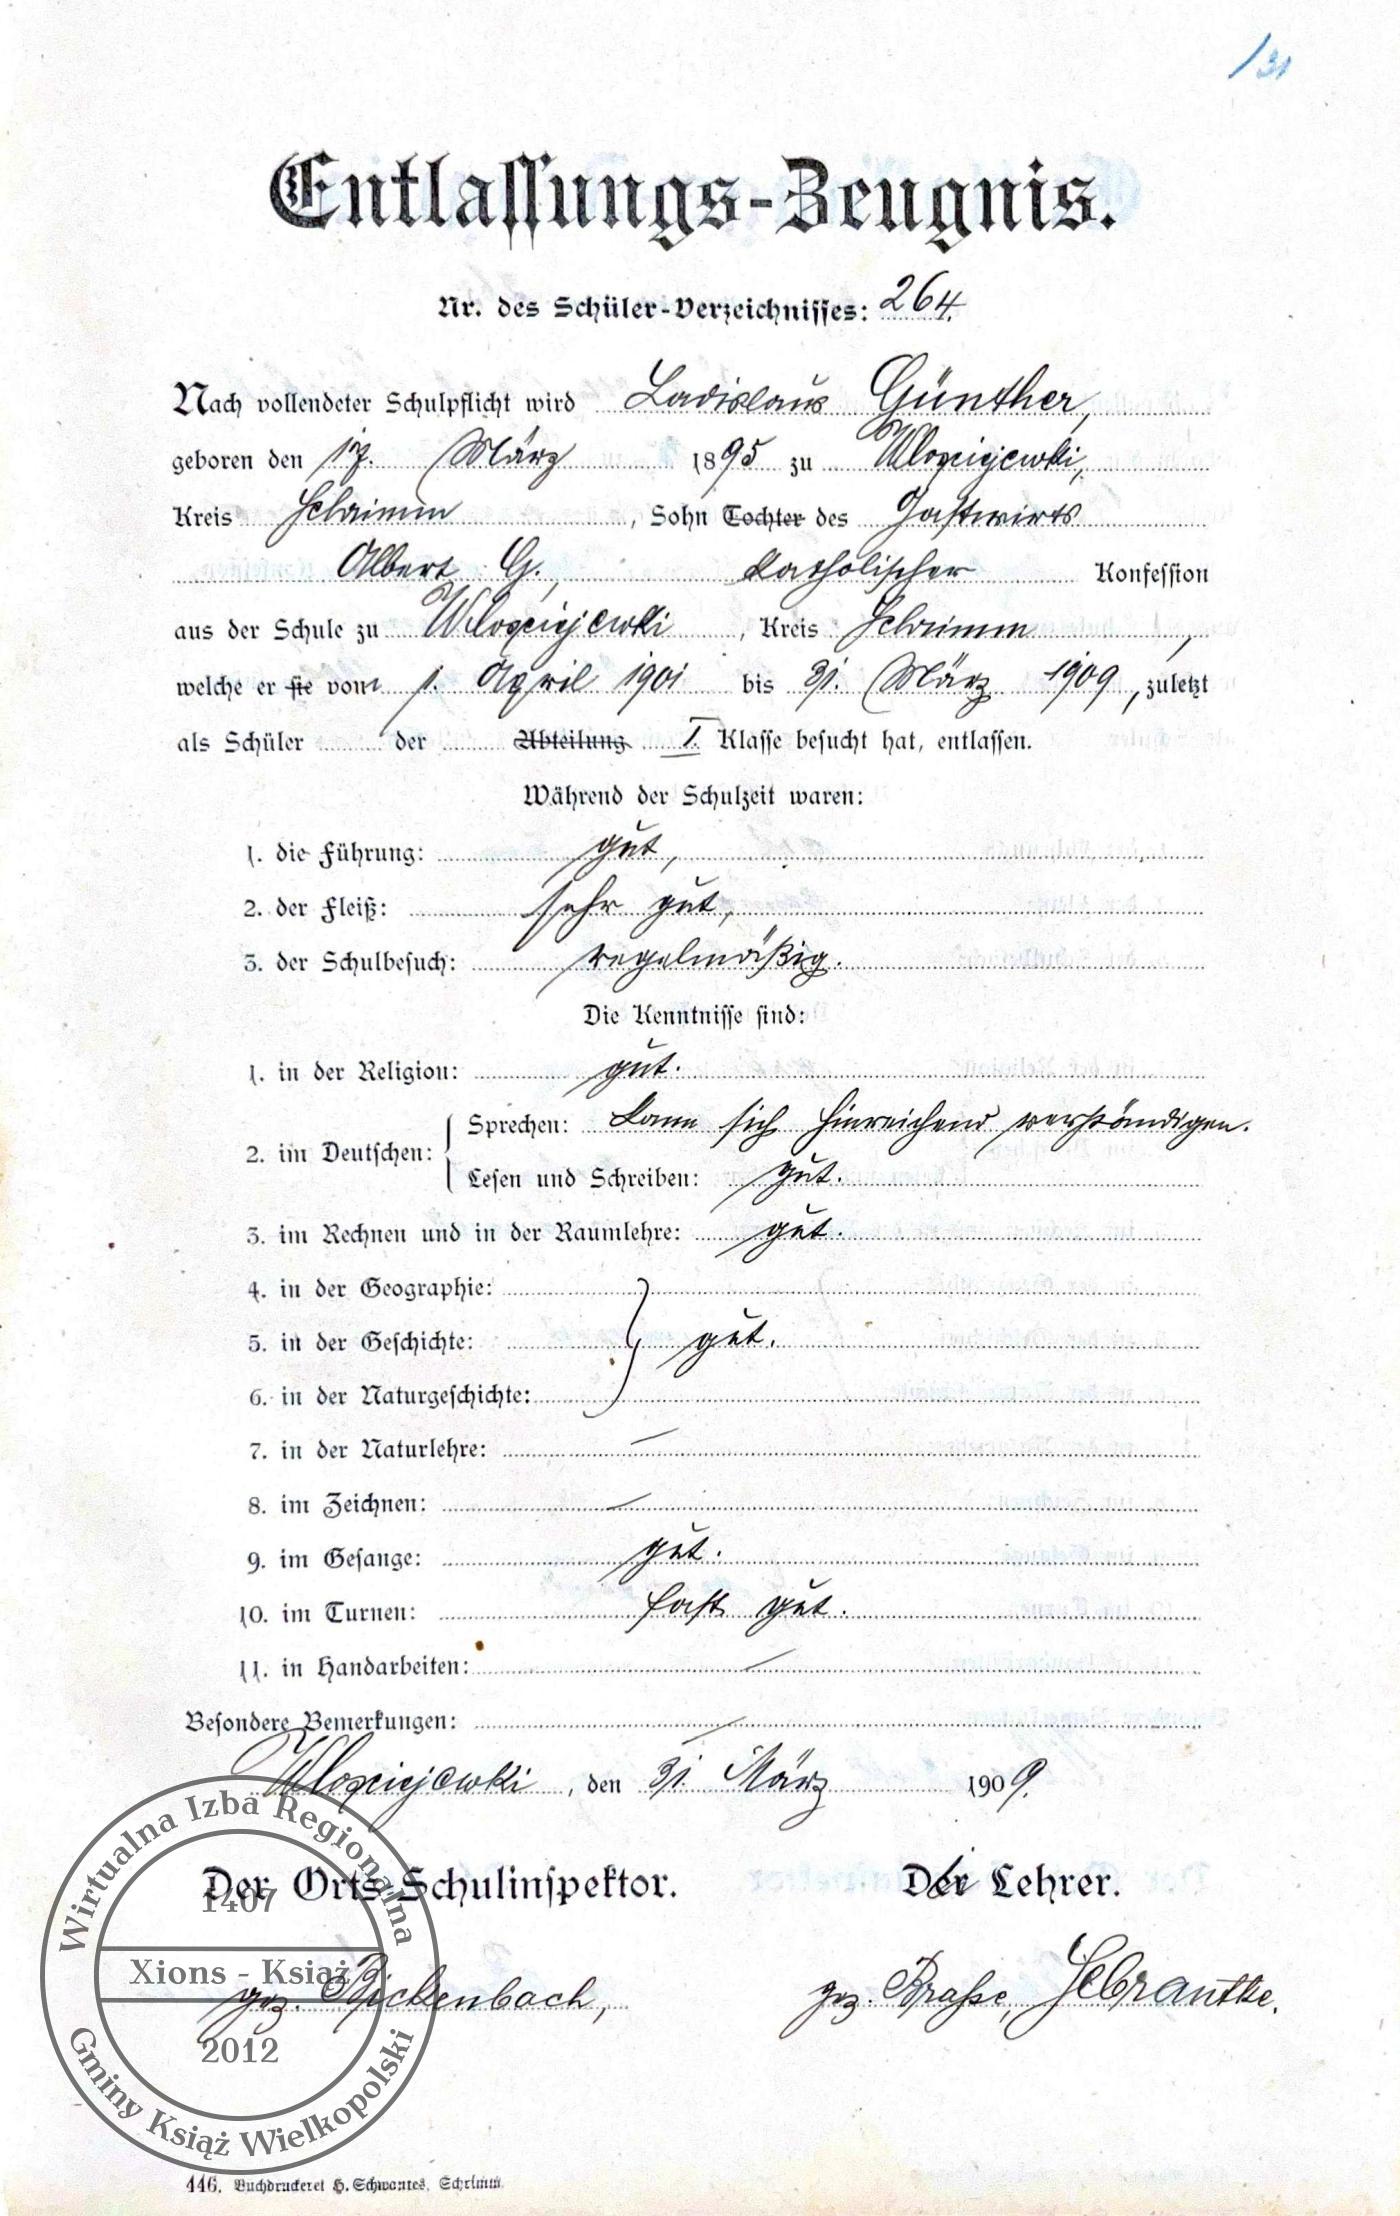 /31
Entlassungs-Zeugnis.
Nr. des Schüler-Verzeichnisses: 264.
Nach vollendeter Schulpflicht wird Ladislaus Günther,
geboren den 17. März 1895 zu Wloscijewki,
Kreis Schrimm, Sohn Tochter des Gastwirts
Albert G., katholischer Konfession
aus der Schule zu Wloscijewki, Kreis Schrimm,
welche er sie vom 1. April 1901 bis 31. März 1909, zuletzt
als Schüler der Abteilung I. Klasse besucht hat, entlassen.
Während der Schulzeit waren:
1. die Führung: gut,
2. der Fleiß: sehr gut,
3. der Schulbesuch: regelmäßig.
Die Kenntnisse sind:
1. in der Religion: gut.
2. im Deutschen: Sprechen: kann sich hinreichend verständigen.
Lesen und Schreiben: gut.
3. im Rechnen und in der Raumlehre: gut.
4. in der Geographie:
5. in der Geschichte: gut.
6. in der Naturgeschichte:
7. in der Naturlehre: —
8. im Zeichnen: —
9. im Gesange: gut.
10. im Turnen: fast gut.
11. in Handarbeiten: —
Besondere Bemerkungen: —
Wloscijewki, den 31. März 1909.
Der Orts-Schulinspektor. Die Lehrer.
gez. Bickenbach, gez. Braße, Schrantke.
Wirtualna Izba Regionalna
1407
Xions - Książ
2012
Gminy Książ Wielkopolski
446. Buchdruckerei H. Schwantes, Schrimm